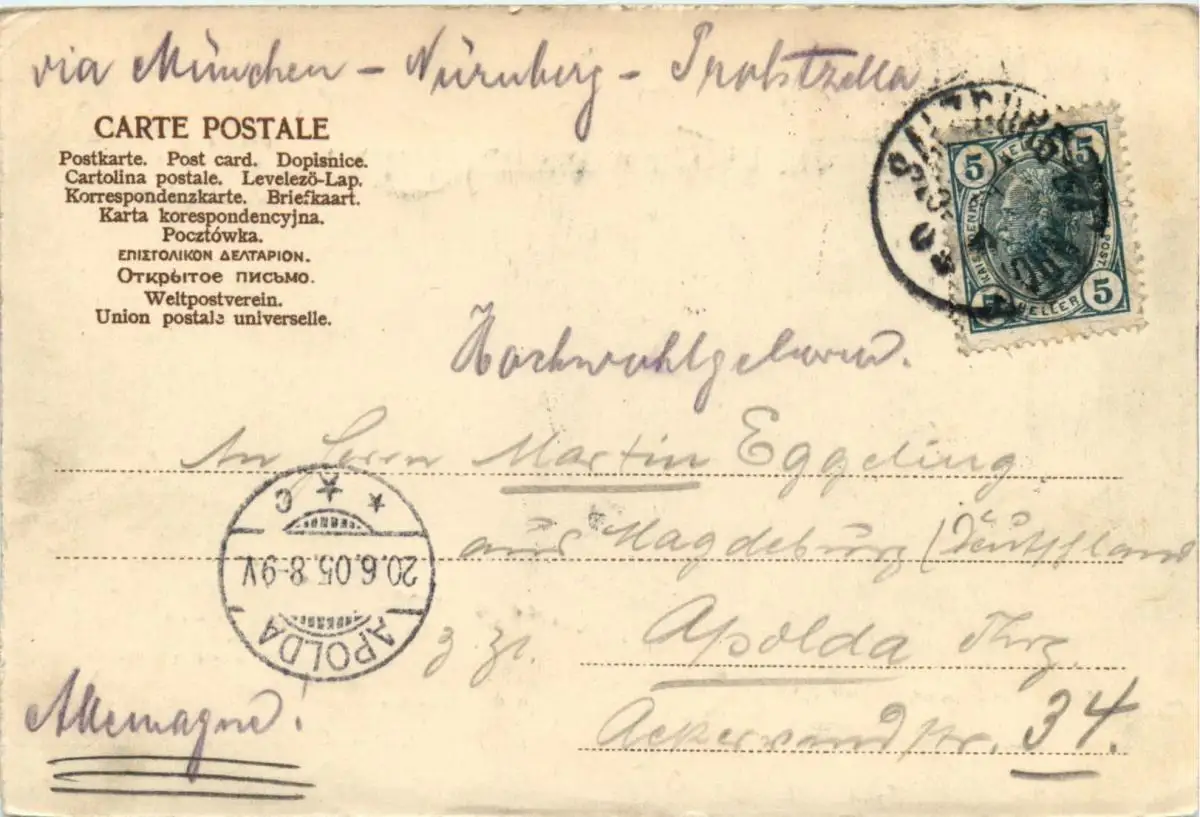 via München - Nürnberg - Probstzella
CARTE POSTALE
Postkarte. Post card. Dopisnice.
Cartolina postale. Levelező-Lap.
Korrespondenzkarte. Briefkaart.
Karta korespondencyjna.
Pocztówka.
ΕΠΙΣΤΟΛΙΚΟΝ ΔΕΛΤΑΡΙΟΝ.
Открытое письмо.
Weltpostverein.
Union postale universelle.
SALZBURG
5 5
5 HELLER 5
Hochwohlgeboren.
An Herrn Martin Eggeling
aus Magdeburg (Deutschland
z. Zt. Apolda Thrg.
Ackerwandstr. 34.
APOLDA
20.6.05.8-9V.
* c
Allemagne!